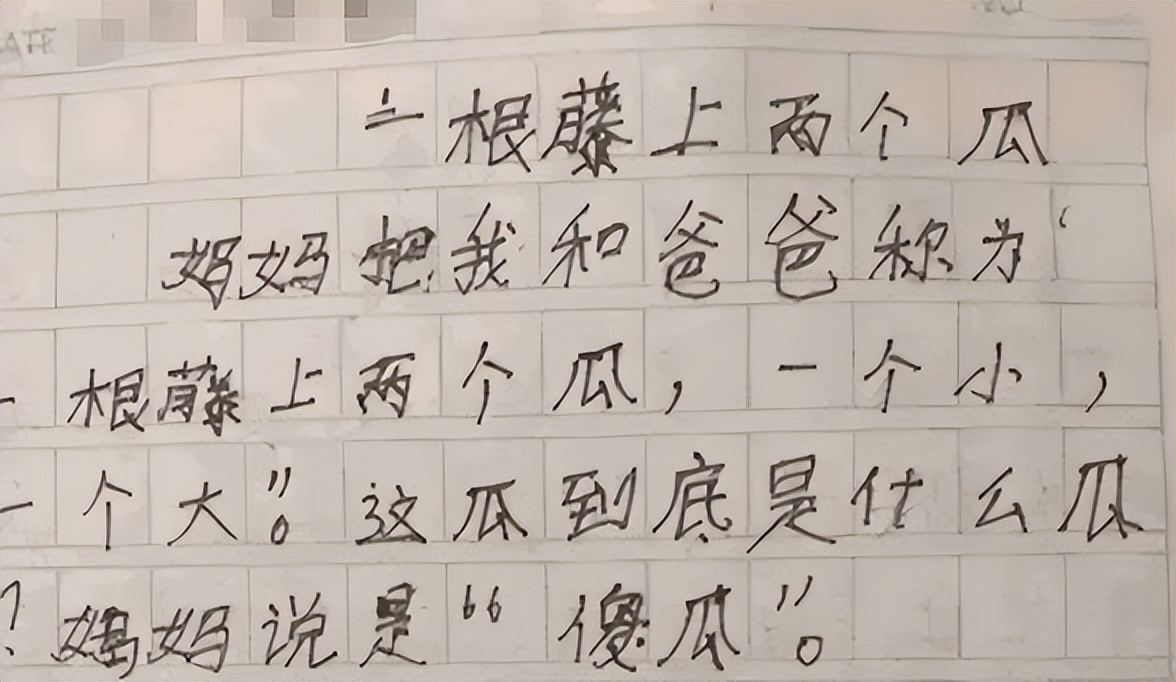 一根藤上两个瓜
妈妈把我和爸爸称为“
一根藤上两个瓜，一个小，
一个大”。这瓜到底是什么瓜
？妈妈说是“傻瓜”。